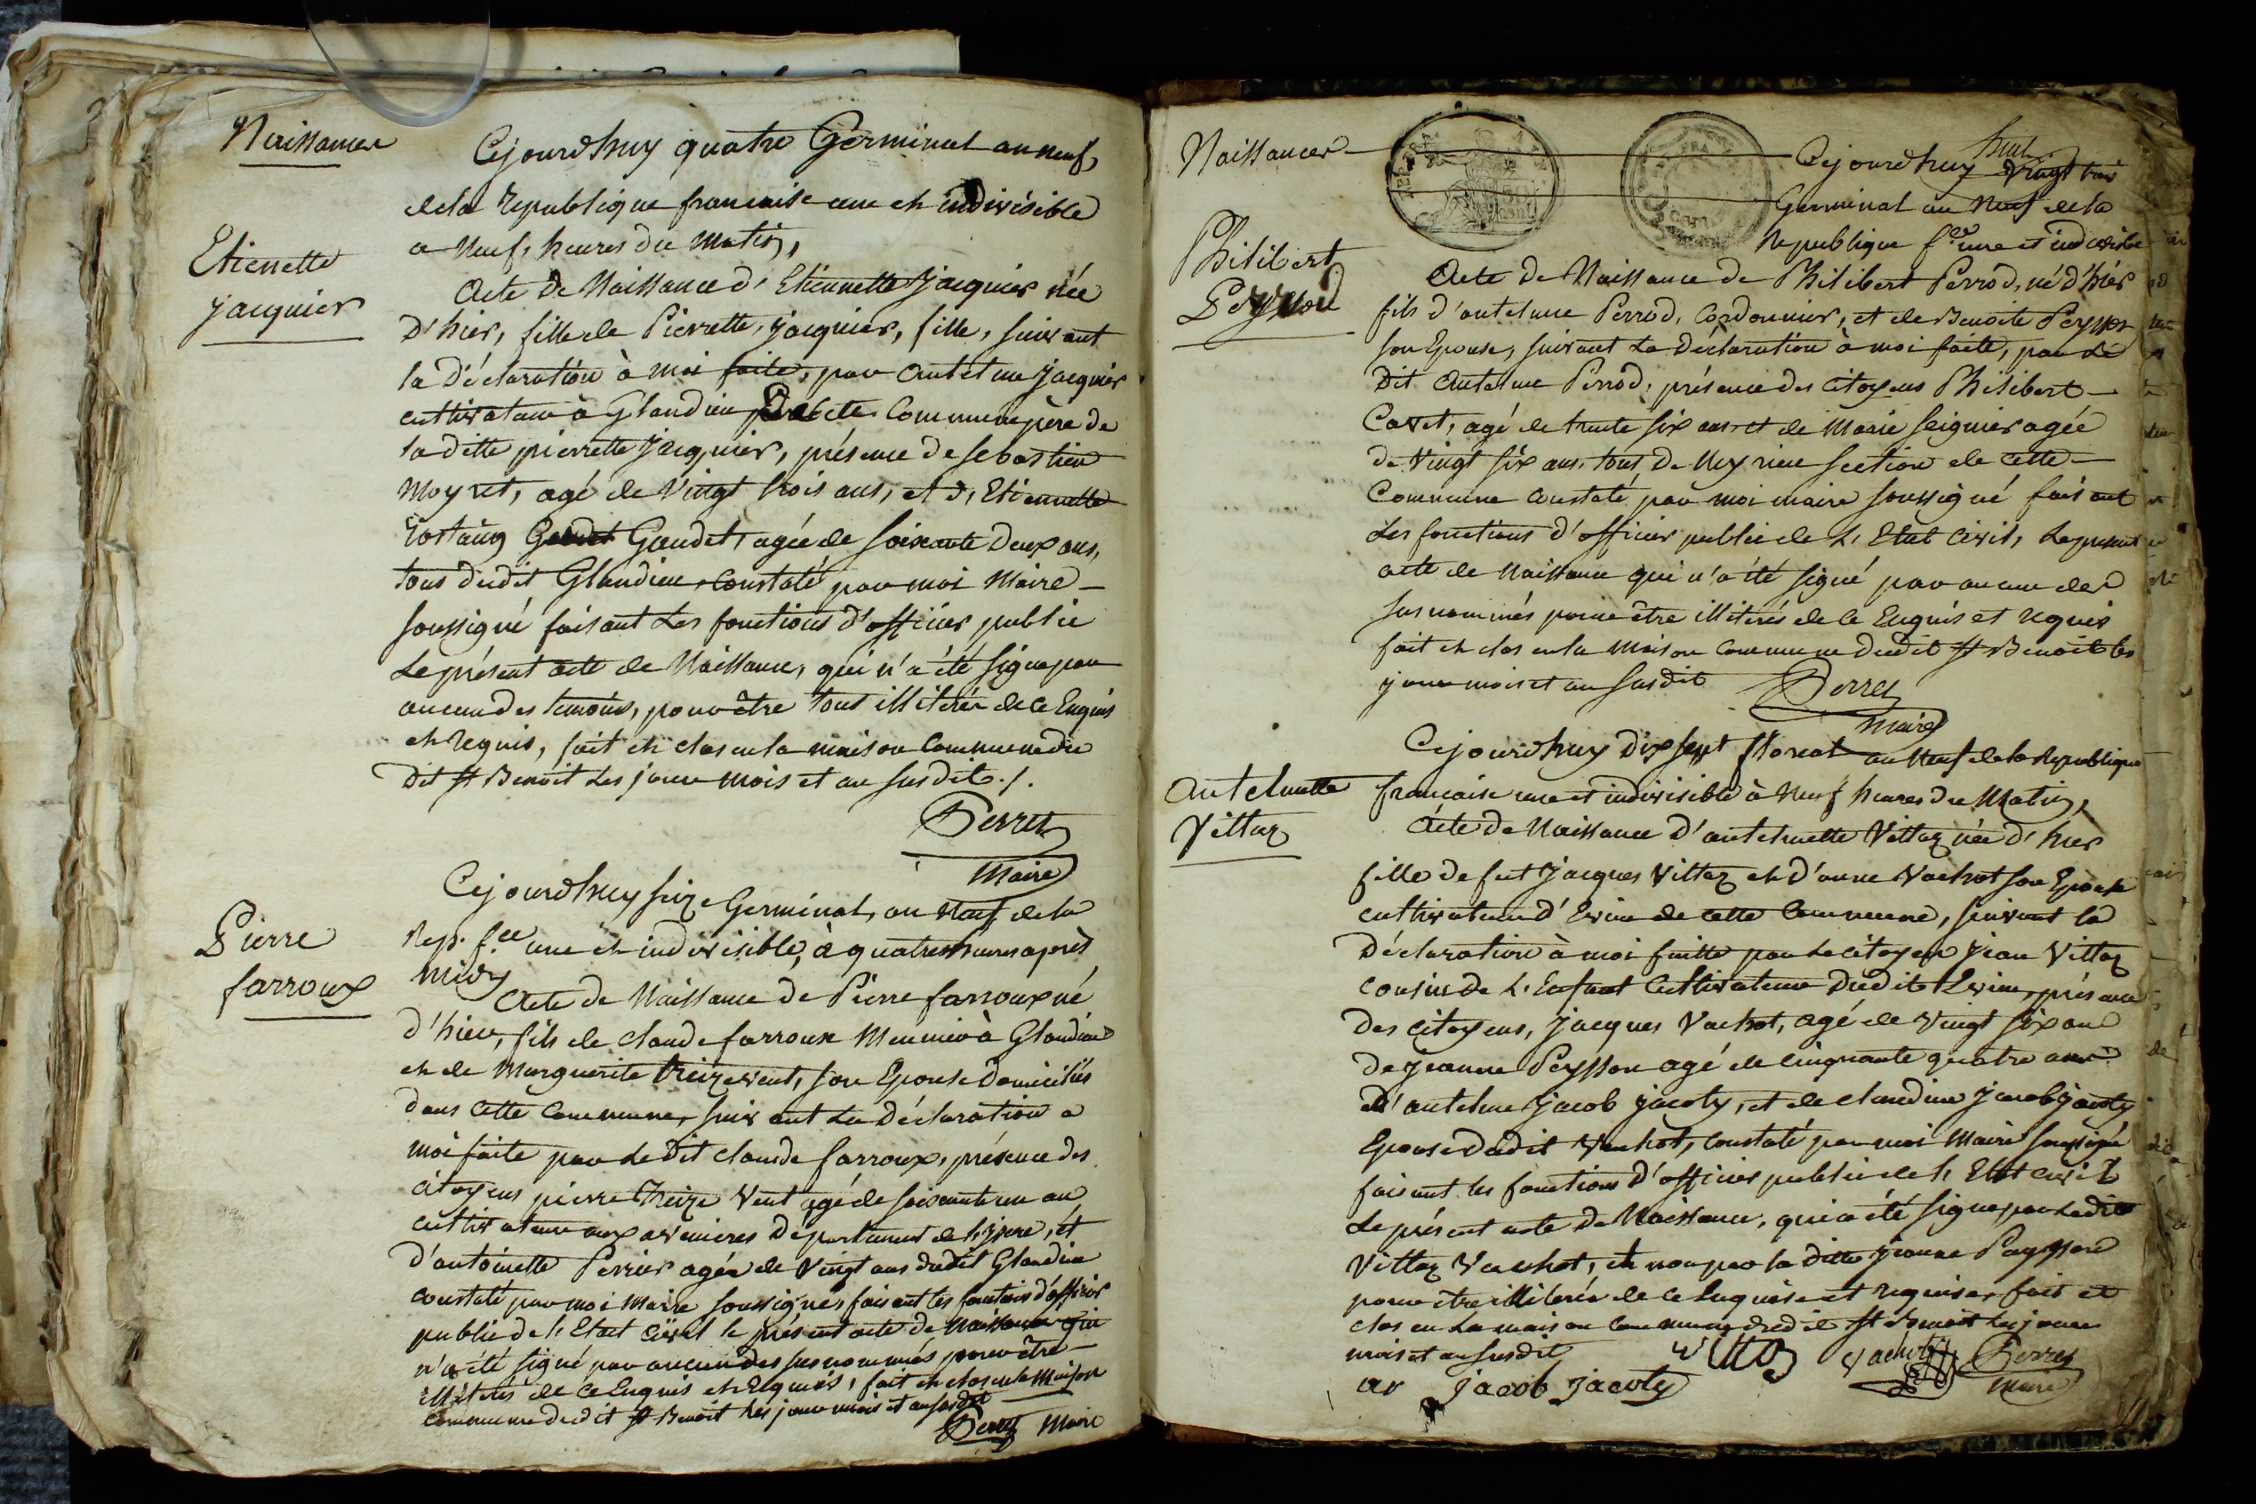 Naissances
Cejourdhuy quatre Germinal an neuf,
dela Republique francaise une et indivisible
a Neuf, heures du Matin,
Etienette
jacquier
Acte de Naissance d'Etiennette Jacquier née
D'hier, fille de Pierrette, jacquier, fille, suivant
la Déclaration à moi faite, par Antelme Jacquier
cultivateur à Glandieu de cette Commune père de
la ditte pierrette Jacquier, présence de sebastien
Moynet, agé de Vingt trois ans, et d'Etiennette
Gaudet, agée de soixante Deux ans,
tous dudit Glandieu, Constaté par moi Maire
soussigné faisant Les fonctions d'officier public
Le présent acte de Naissance, qui n'a été signé par
aucun des temoins, pour être tous illiterés de ce Enquis
et Requis, fait et clos en la maison Commune du
Dit St Benoit Les jour mois et an susdit ./.
Perret
Maire
Pierre
farroux
Cejourdhuy seize Germinal, an Neuf dela
Rep. f.ce une et indivisible, à quatre heures après
midy
Acte de Naissance de Pierre farroux né
d'hier, fils de claude farroux Meunier à Glandieu
et de Marguerite treizevent, son Epouse Domiciliés
dans cette Commune, suivant La Déclaration a
moi faite par Le Dit claude farroux, présence des
citoyens pierre treize Vent agé de soixante un an
cultivateur aux avenieres Département de l'Isere, et
d'antoinette Perrier agée de Vingt ans dudit Glandieu
constaté par moi Maire soussigné faisant les fonctions d'officier
public de l'Etat Civil le présent acte de Naissance qui
n'a été signé par aucun des susnommés pour être
illiterés de ce Enquis et Requis, fait et clos en la Maison
commune dudit St Benoit les jour mois et an susdit
Perret Maire
Naissances
Cejourdhuy huit
Vingt trois
Germinal an Neuf de la
Republique f.ce une et indivisible
Philibert
Perrod
Acte de Naissance de Philibert Perrod, né d'hier
fils d'antelme Perrod, Cordonnier, et de Benoite Peysson
son Epouse, suivant La Déclaration à moi faite, par Le
Dit Antelme Perrod, présence des citoyens Philibert
Cavet, agé de trente six ans, et de Marie seignier agée
de Vingt six ans, tous De Neyrieu section de cette
Commune constaté par moi maire soussigné faisant
Les fonctions d'officier public de L'Etat Civil, Le present
acte de Naissance qui n'a été signé par aucun des
susnommés pour être illiterés de ce Enquis et requis
fait et clos en la Maison Commune dudit St Benoit les
jour mois et an susdit
Perret
Maire
Cejourdhuy Dix sept floreal an Neuf de la Republique
Antelmette
Vittoz
francaise une et indivisible à Neuf heures du Matin,
Acte de Naissance d'antelmette Vittoz née d'hier
fille de feu Jacques Vittoz et d'anne Vachot son Epouse
cultivateur d'Evieu de cette Commune, suivant la
Déclaration à moi faitte par Le citoyen Jean Vittoz
cousin de L'Enfant Cultivateur dudit Evieu, présence
des citoyens, Jacques Vachot, agé de Vingt six ans
de jeanne Peysson agé de cinquante quatre ans
d'antelme Jacob Jacoty, et de claudine Jacob Jacoty
Epouse dudit Vachot, Constaté par moi Maire soussigné
faisant les fonctions D'officier public de l'Etat civil
Le présent acte De Naissance, qui a été signé par Ledit
Vittoz Vachot, et non par la ditte jeanne Peysson
pour être illiterée de ce Enquise et requise, fait et
clos en La maison Commune dudit St Benoit Les jour
mois et an susdit
Vittoz Vachot Perret
Jacob Jacoty Maire